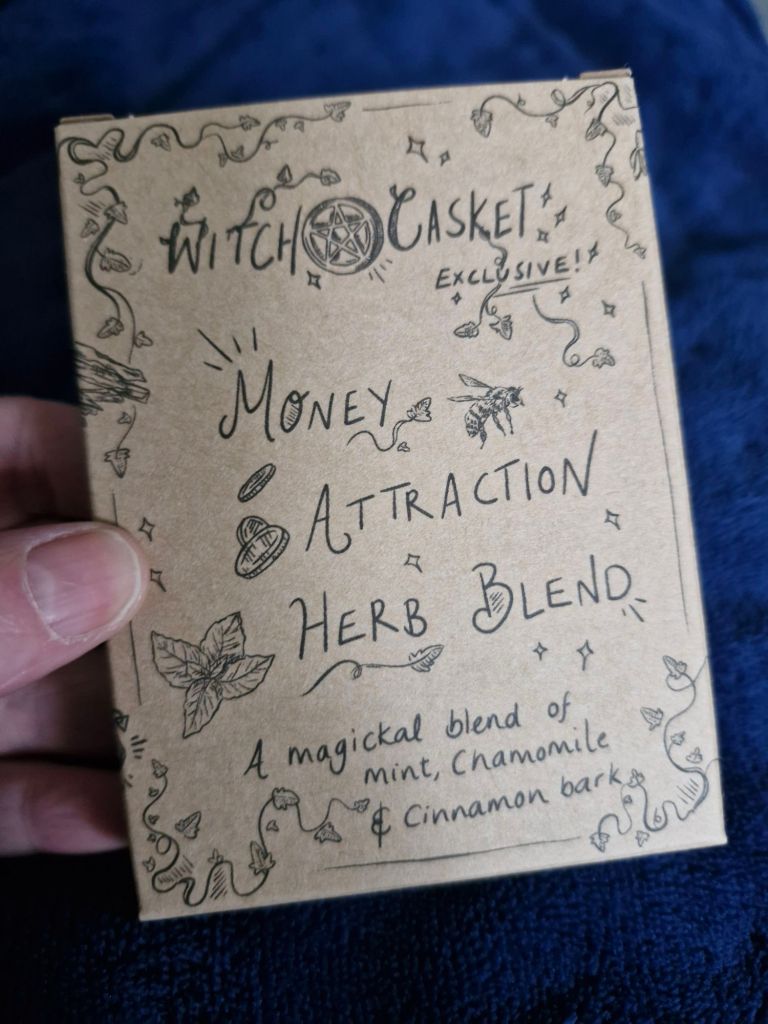 Witch Casket
Exclusive!
Money
Attraction
Herb Blend
A magickal blend of
mint, Chamomile
& Cinnamon bark